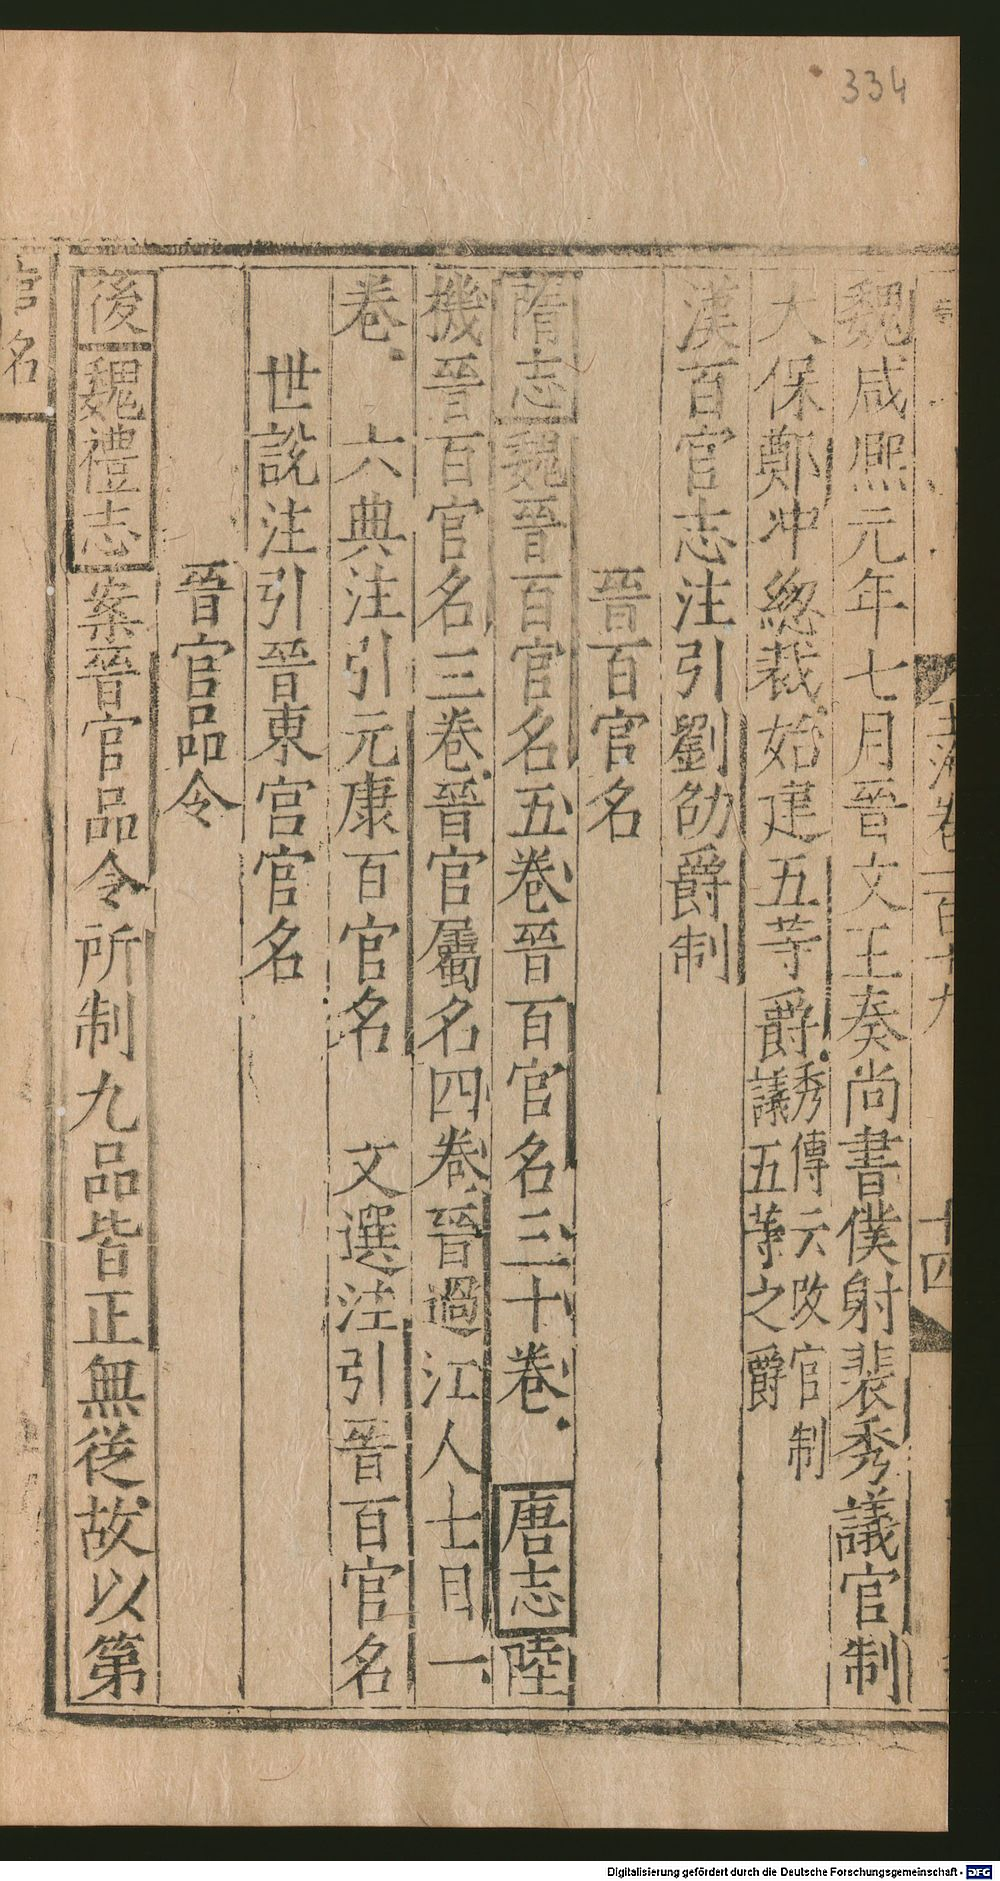 334
玉海卷一百十九
十四
魏咸熙元年七月晉文王奏尚書僕射裴秀議官制
大保鄭冲緫裁始建五等爵秀傳云改官制議五等之爵
漢百官志注引劉劭爵制
晉百官名
隋志魏晉百官名五卷晉百官名三十卷唐志陸
機晉百官名三卷晉官屬名四卷晉過江人士目一
卷 六典注引元康百官名 文選注引晉百官名
世說注引晉東宫官名
晉官品令
後魏禮志案晉官品令所制九品皆正無從故以第
官名
Digitalisierung gefördert durch die Deutsche Forschungsgemeinschaft - DFG